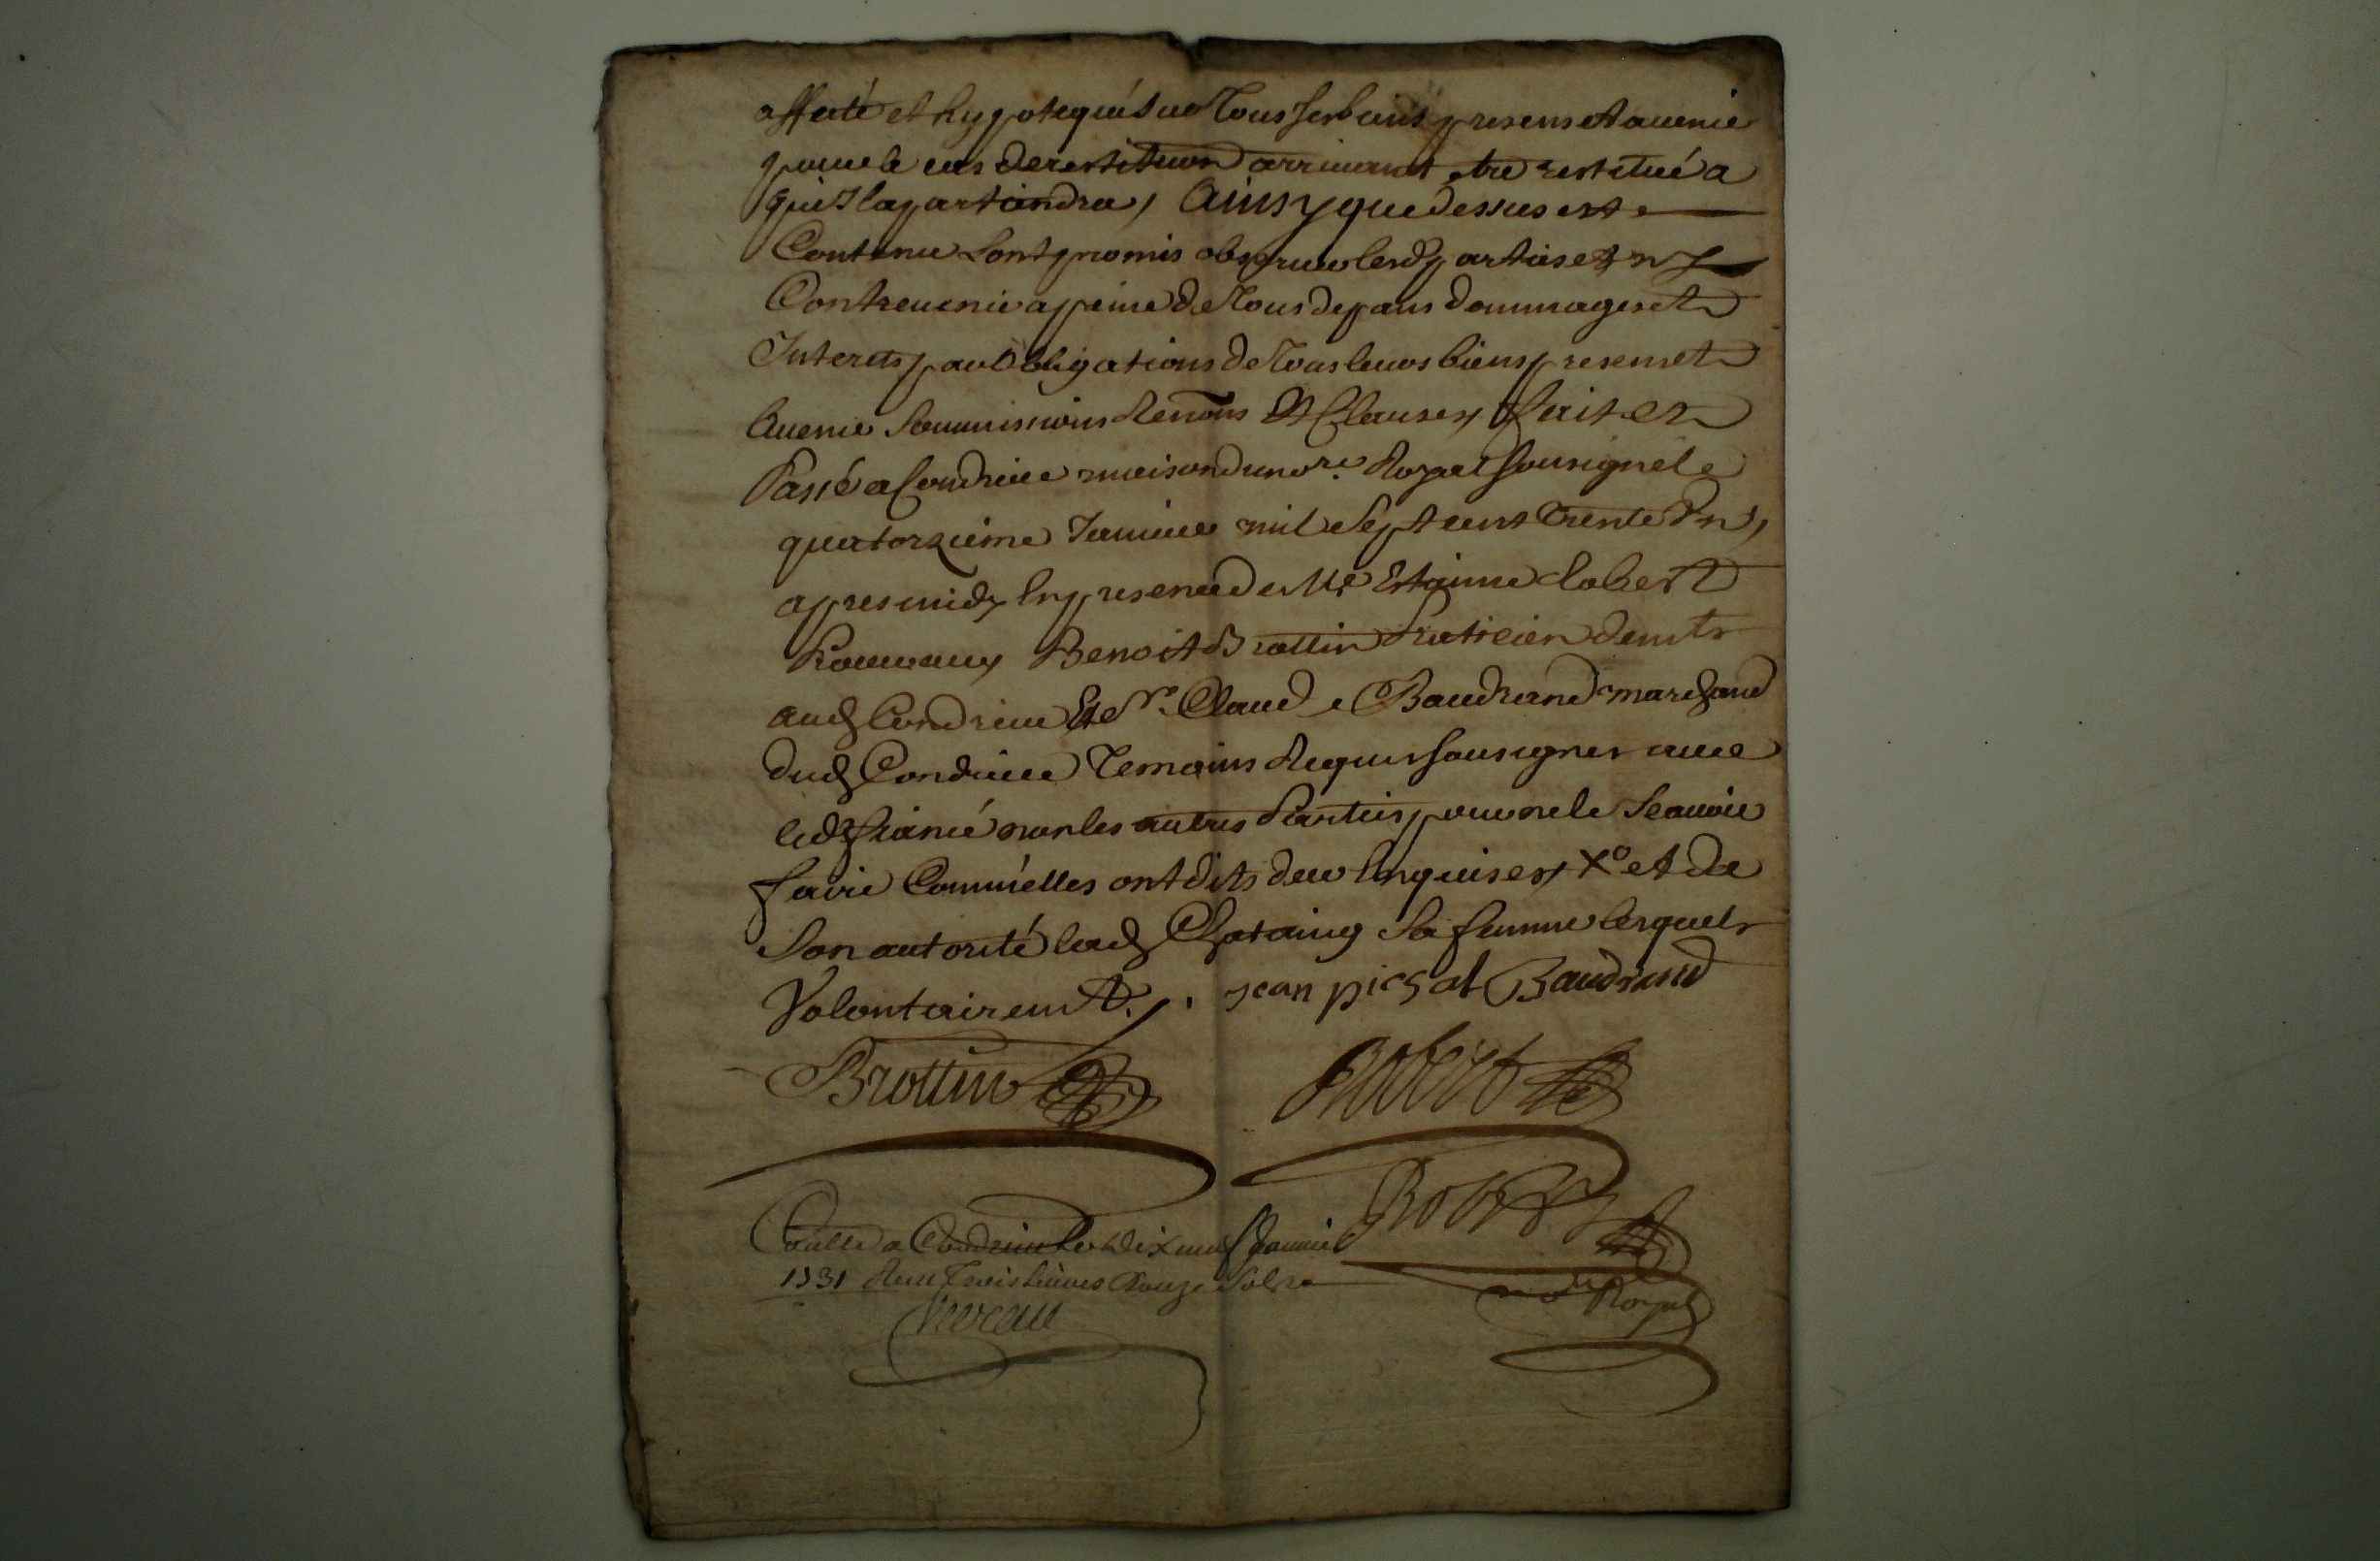 affecté et hypotequé sur Tous ses biens presens et avenir
pour le cas de restitution arrivant etre restitué a
qu'il apartiendra, Ainsy que dessus est
Contenu L'ont promis observer lesd parties et ny
Contrevenir a peine de Tous depans dommages et
Interets par obligations de Tous leurs biens presens et
avenir soumissions Renons Et Clauses fait et
Passé a Condrieu maison du nore. Royal sousigné le
quatorzieme Janvier mil sept cent trente Un,
apres midy En presence de Me Estienne Robert
Benoit Brottin Praticien demts
aud Condrieu Et Sr. Claude Baudrand marchand
dud Condrieu Temoins Requis sousignes avec
led fiancé non les autres Parties pour ne le scavoir
faire Comm'elles ont dits de ce Enquises Xo et de
son autorité lad Chataing sa femme lesquels
Volontairemt. jean pichat Baudrand
Brottin Robert
Robert
Conllé a Condrieu le dix neuf Janvier
1731 Reçu Trois livres douze sols
nore Royal